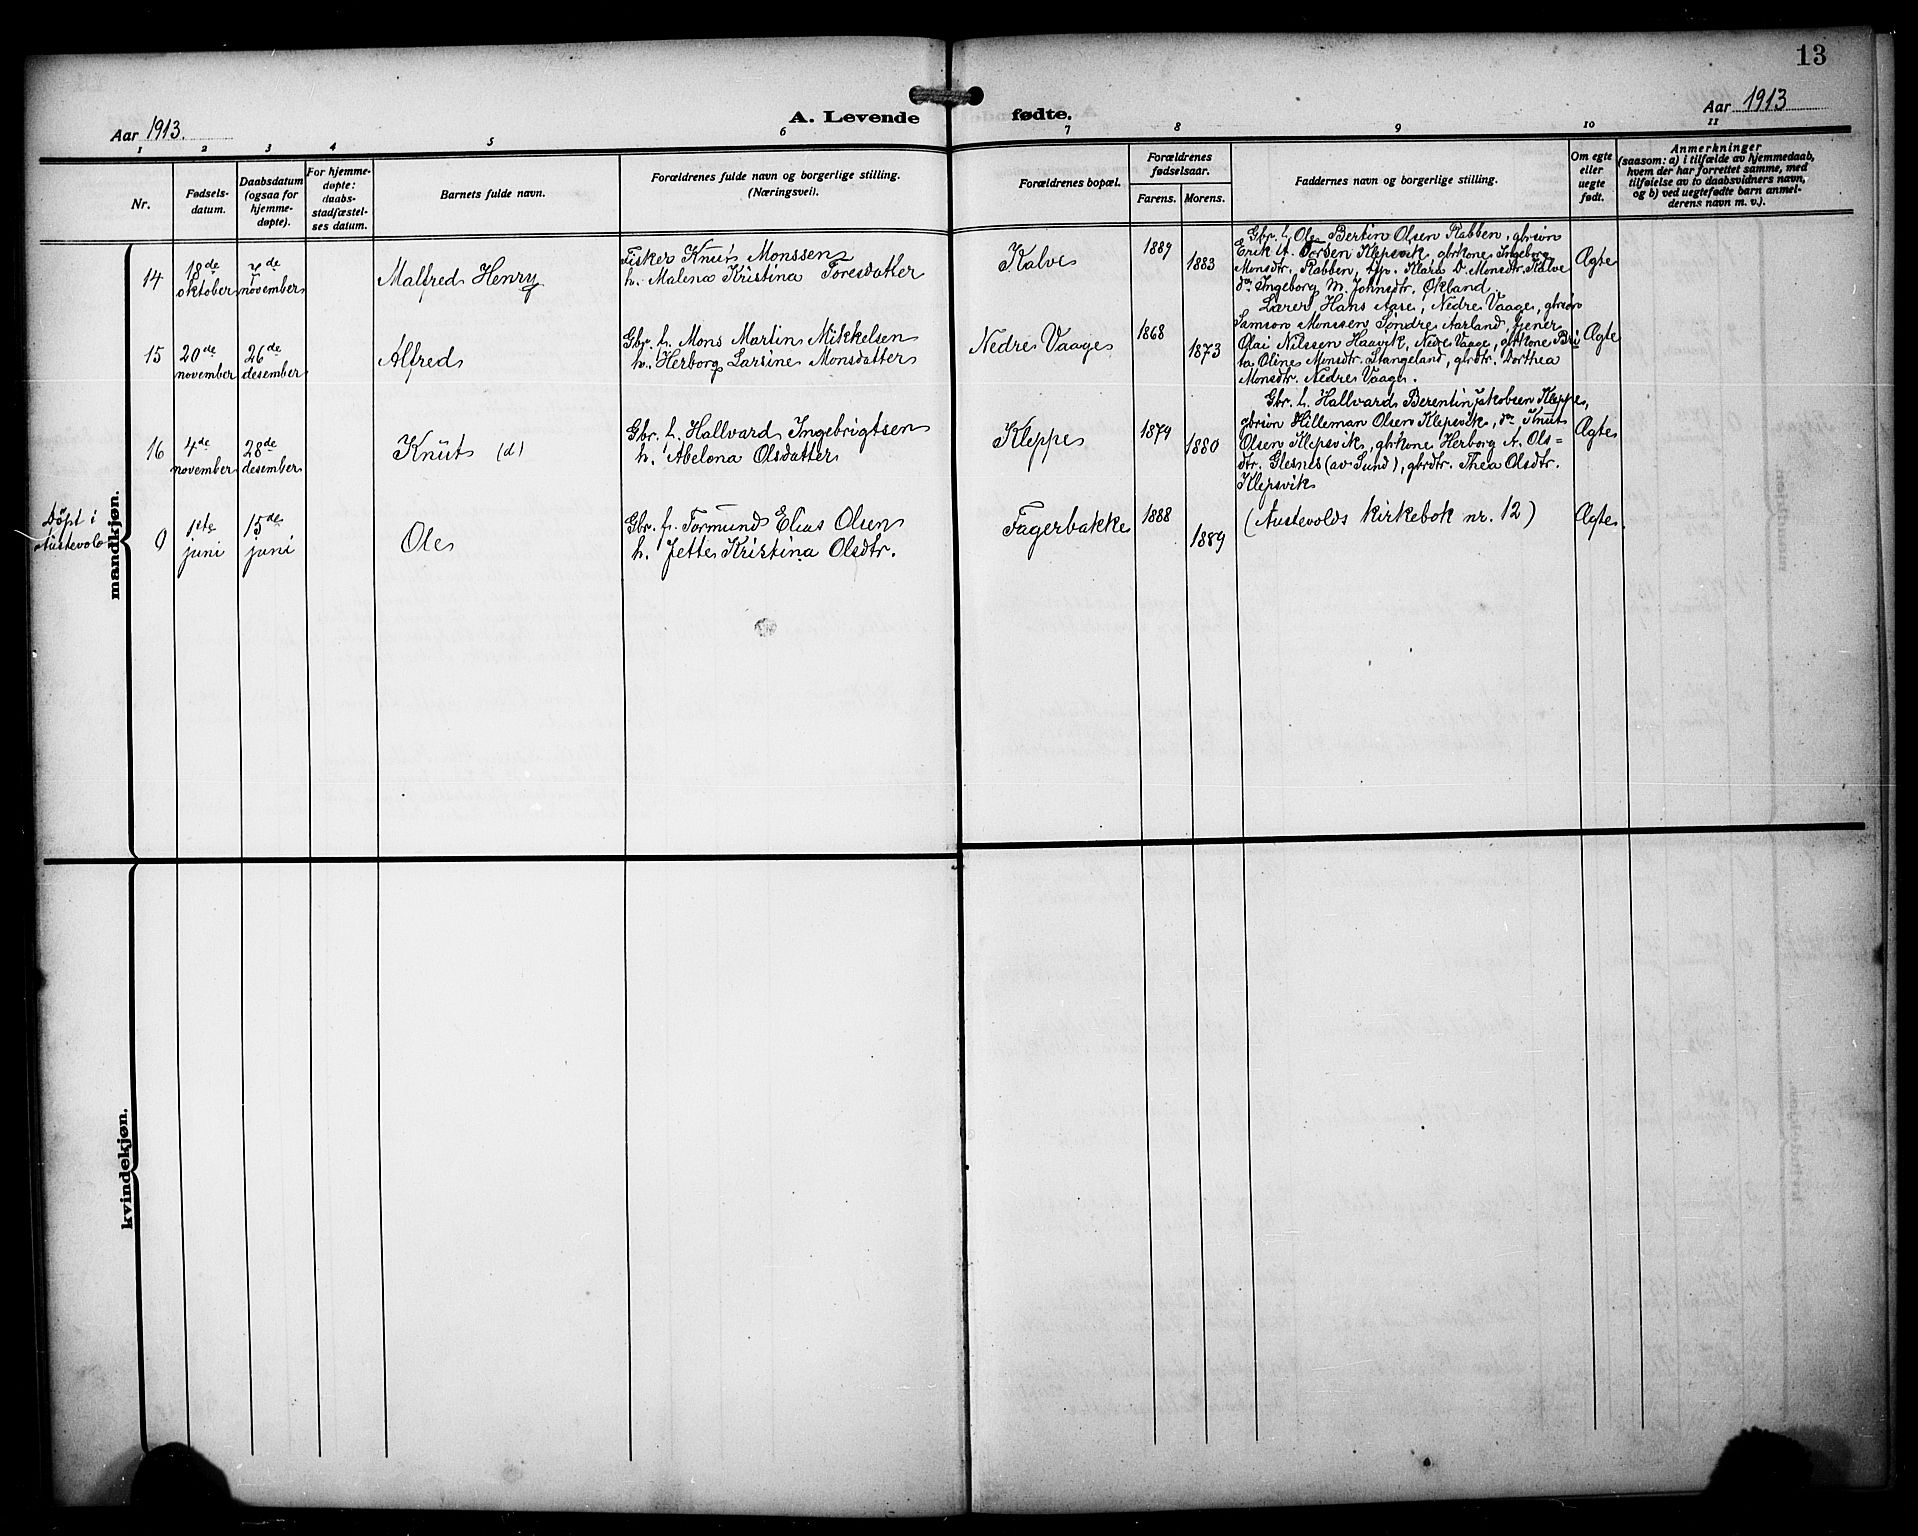 13
Aar 1913.
A. Levende fødte.
Aar 1913
1 2 3 4 5 6 7 8 9 10 11
Nr.
Fødsels-
datum.
Daabsdatum
(ogsaa for
hjemme-
døpte).
For hjemme-
døpte:
daabs-
stadfæstel-
ses datum.
Barnets fulde navn.
Forældrenes fulde navn og borgerlige stilling.
(Næringsvei).
Forældrenes bopæl.
Forældrenes
fødselsaar.
Farens. Morens.
Faddernes navn og borgerlige stilling.
Om egte
eller
uegte
født.
Anmerkninger
(saasom: a) i tilfælde av hjemmedaab,
hvem der har forrettet samme, med
tilføielse av to daabsvidners navn,
og b) ved uegtefødte barn anmel-
derens navn m. v.).
mandkjøn.
14
18de
oktober
november
Malfred Henry
Fisker Knut Monssen
h. Malena Kristina Toresdatter
Kalve
1889
1883
Gbr. L. Ole Bertin Olsen Rabben, gbrsøn
Erik A. Torsen Klepsvik, gbrkone Ingeborg
Monsdtr. Rabben, Klara D. Monsdtr. Kalve
do Ingeborg M. Johnsdtr. Økland.
Ægte
15
20de
november
26de
desember
Alfred
Gbr. L. Mons Martin Mikkelsen
h. Herborg Larsine Monsdatter
Nedre Vaage
1868
1873
Lærer Hans Aase, Nedre Vaage, gbrsøn
Samson Monssen Søndre Aarland, tjener
Olai Nilssen Haavik, Nedre Vaage, gbrkone Bri
ta Oline Monsdtr. Stangeland, gbrdtr. Dorthea
Monsdtr. Nedre Vaage.
Ægte
16
4de
november
28de
desember
Knut (d)
Gbr. L. Hallvard Ingebrigtsen
h. Abelona Olsdatter
Kleppe
1874
1880
Gbr. L. Hallvard Berentin Jakobsen Kleppe,
gbrsøn Hilleman Olsen Klepsvik, do Knut
Olsen Klepsvik, gbrkone Herborg A. Ols=
dtr. Glesnes (av Sund), gbrdtr. Thea Olsdtr.
Klepsvik
Ægte
Døpt i
Austevold
9
1ste
juni
15de
juni
Ole
Gbr. L. Tormund Elias Olsen
h. Jette Kristina Olsdtr.
Fagerbakke
1888
1889
(Austevolds kirkebok nr. 12)
Ægte
kvindekjøn.